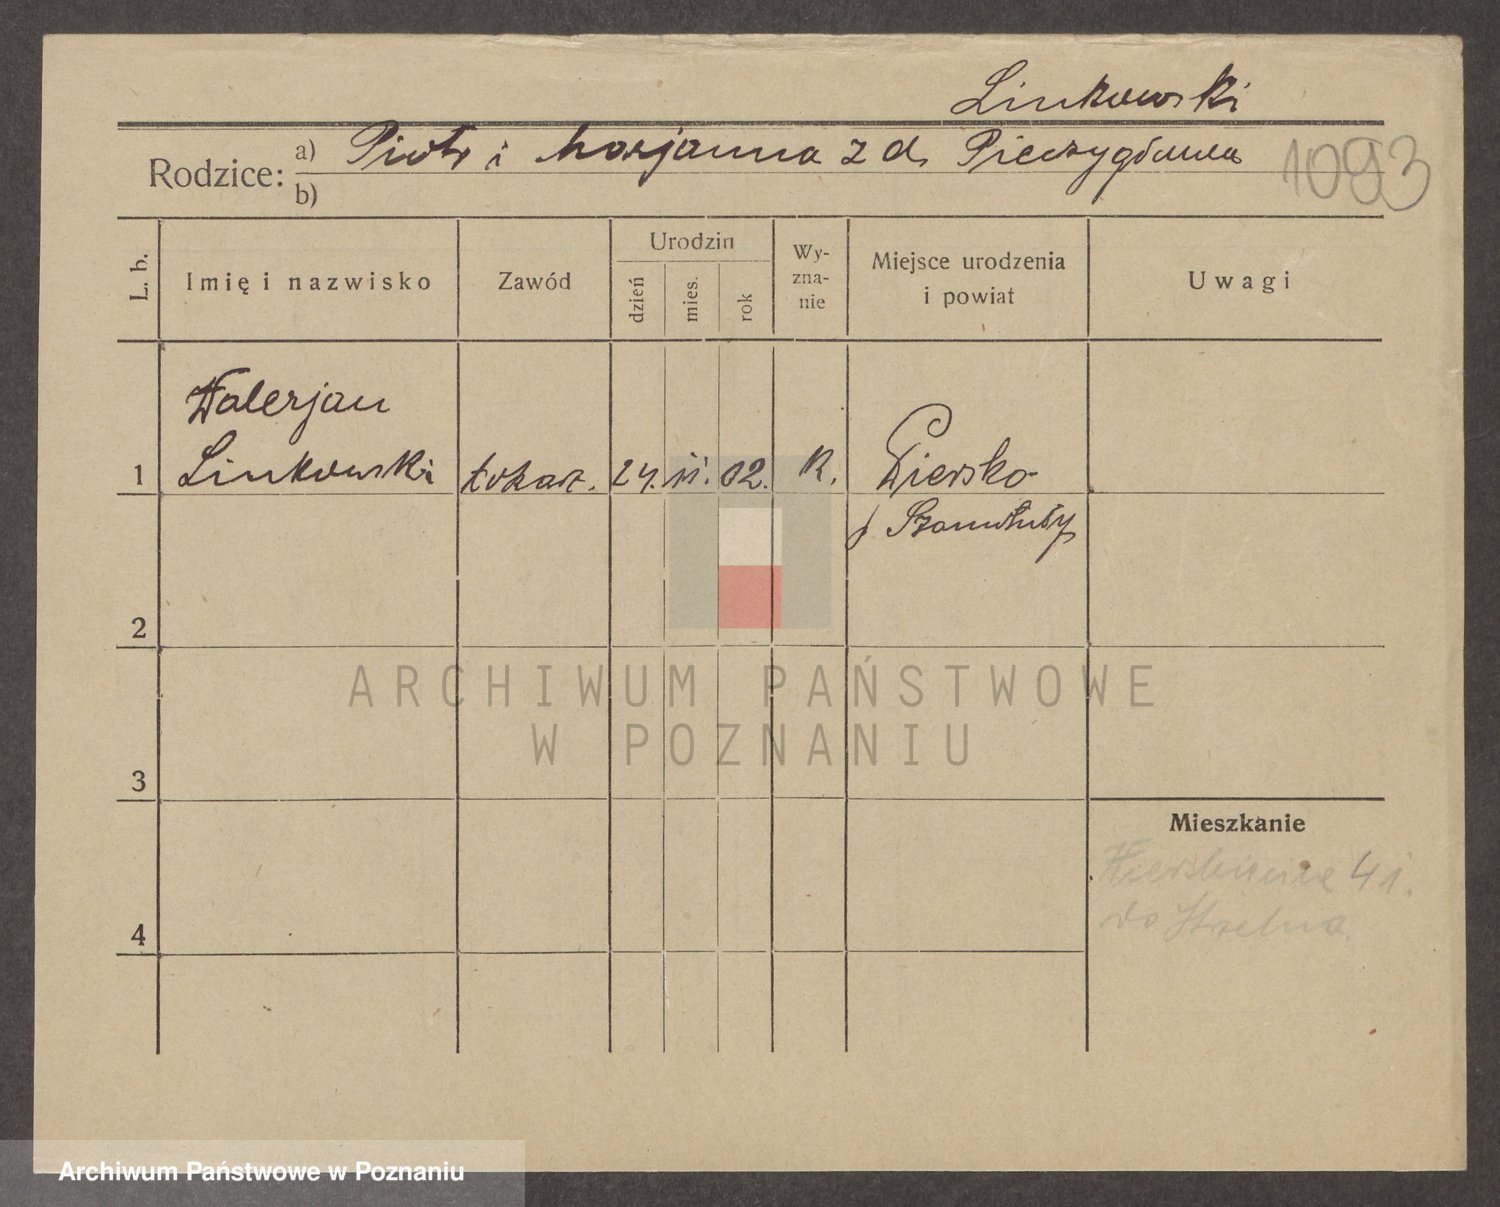 Linkowski
Rodzice: a) Piotr i Marjanna z d. Pieczygłowa
b)
1093
L. b.
Imię i nazwisko
Zawód
Urodzin
dzień
mies.
rok
Wy-
zna-
nie
Miejsce urodzenia
i powiat
Uwagi
Walerjan
1 Linkowski tokarz. 24. 11. 02. R. Piersko
p Szamotuły
2
ARCHIWUM PAŃSTWOWE
W POZNANIU
3
Mieszkanie
Wierzbięcice 41.
do Strzelna.
4
Archiwum Państwowe w Poznaniu